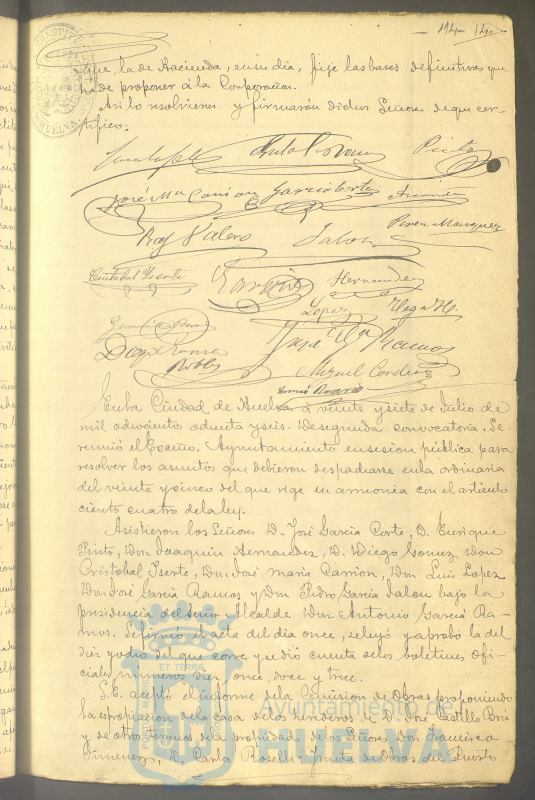 114 14
que, la de Hacienda, en su dia, fije las bases definitivas que
ha de proponer á la Corporacion.
Asi lo resolvieron y firmarán dichos Señores de que cer-
tifico:
Pinto
José Ma Carrion García Corte
Roq Valero Jalon Perez Marquez
Cristobal Ysente Garcia Hernandez
Lopez Vega
Diego Gomez José Ga Ramos
Robles Miguel Cordero
En la Ciudad de Huelva á veinte y siete de Julio de
mil ochocientos ochenta y seis. De segunda convocatoria. Se
reunió el Excmo. Ayuntamiento en sesion pública para
resolver los asuntos que debieron despacharse en la ordinaria
del veinte y cinco del que rige en armonia con el articulo
ciento cuatro de la ley.
Asistieron los Señores D. José García Corte, D. Enrique
Pinto, Don Joaquin Hernandez, D. Diego Gomez Don
Cristobal Ysente, Don José Maria Carrion, Don Luis Lopez
Don José García Ramos y Don Pedro García Jalon bajo la
presidencia del Señor Alcalde Don Antonio García Ra-
mos. Se firmó el acta del dia once, se leyó y aprobó la del
diez y ocho del que corre, y se dió cuenta de los boletines ofi-
ciales numeros diez, once, doce y trece.
S.E. aceptó el informe de la Comision de Obras proponiendo
la espropiacion de la casa de los herederos de D. José Castillo
y de otros terrenos de la propiedad de los Señores Don Francisco
Jimenez, D. Carlos Roselli. Junta de Obras del Puerto
Ayuntamiento de
HUELVA